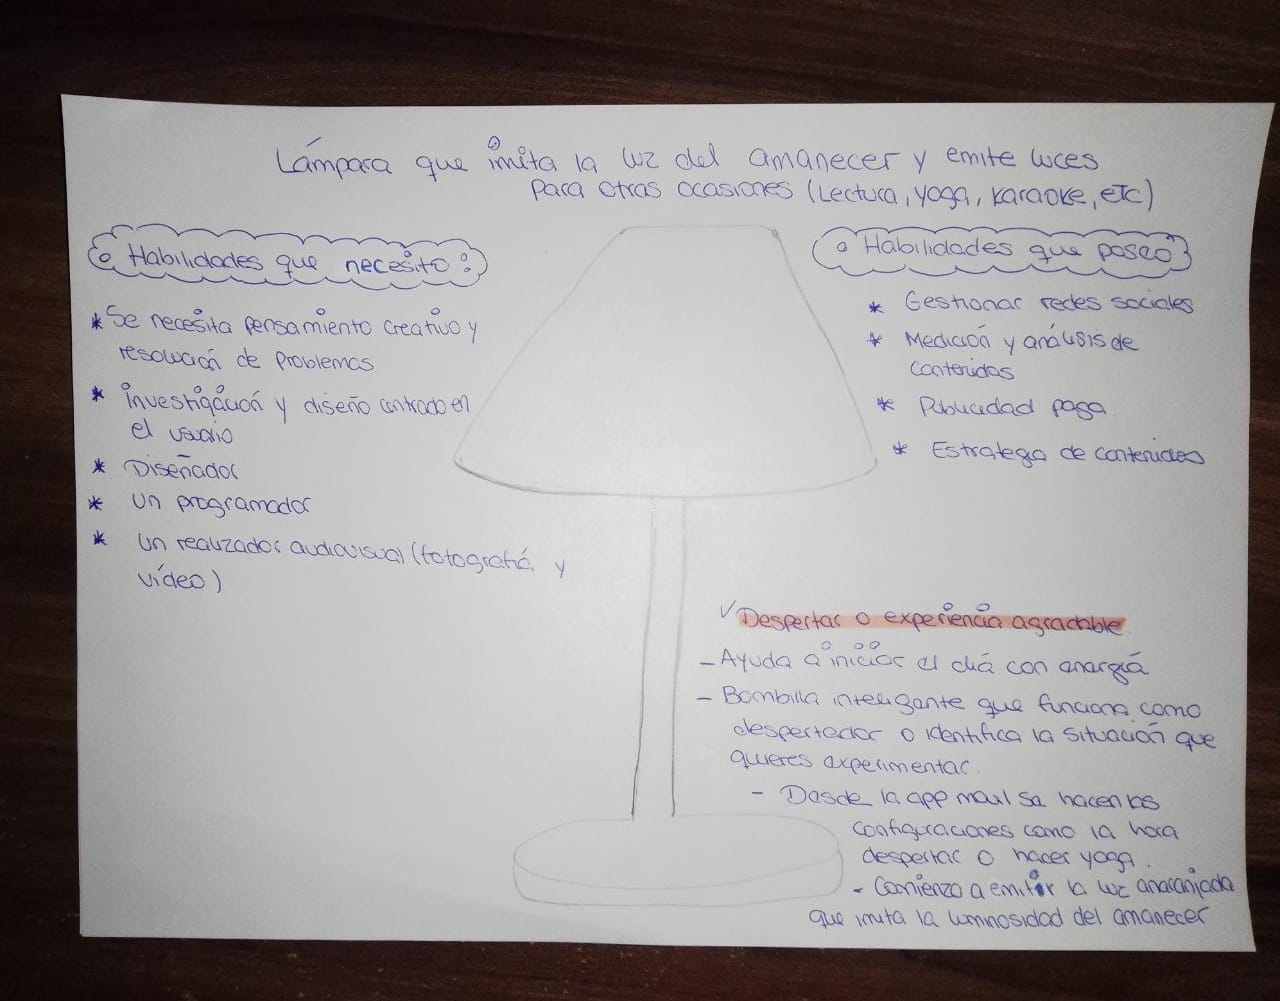 Lámpara que imita la luz del amanecer y emite luces
para otras ocasiones (Lectura, yoga, karaoke, etc)
Habilidades que necesito:
* Se necesita pensamiento creativo y
resolución de problemas
* investigación y diseño centrado en
el usuario
* Diseñador
* Un programador
* Un realizador audiovisual (fotografía y
vídeo)
Habilidades que poseo
* Gestionar redes sociales
* Medición y análisis de
contenidos
* Publicidad paga.
* Estrategia de contenidos
✓ Despertar o experiencia agradable
- Ayuda a iniciar el día con energía
- Bombilla inteligente que funciona como
despertador o identifica la situación que
quieres experimentar.
- Desde la app movil se hacen las
configuraciones como la hora
despertar o hacer yoga.
- Comienza a emitir la luz anaranjada
que imita la luminosidad del amanecer